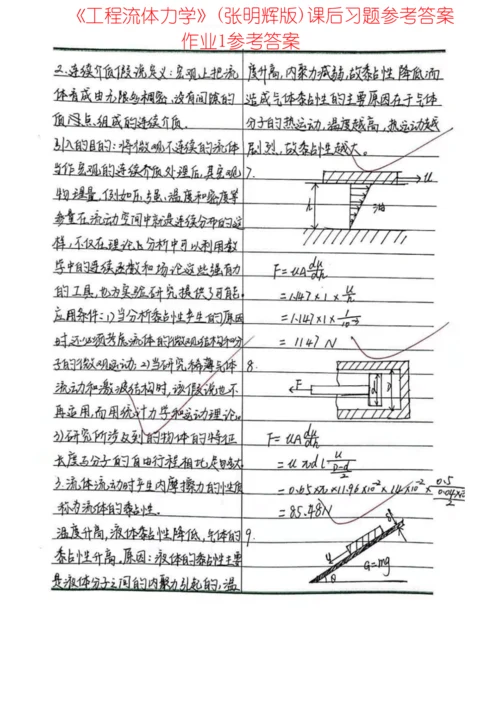 《工程流体力学》(张明辉版)课后习题参考答案
作业1参考答案
2.连续介质假说意义:宏观上把流
体看成由无限多稠密、没有间隙的
质点组成的连续介质.
引入的目的:将微观不连续的流体
当作宏观的连续介质处理后,其宏观
物理量,例如压强、温度和密度等
参量在流动空间中就是连续分布的这
样,不仅在理论上分析中可以利用数
学中的连续函数和场论这些强有力
的工具,也为实验研究提供了可能.
应用条件:1)当分析黏占性产生的原因
时还必须考虑流体的微观结构和分
子的微观运动;2)当研究稀薄气体
流动和激波结构时,该假说也不
再适用,而用统计力学和运动理论。
3)研究所涉及到的物体的特征
长度与分子的自由行程相比足够大.
3.流体流动时产生内摩擦力的性质
称为流体的黏性。
温度升高,液体黏性降低,气体的
黏性升高.原因:液体的黏性主要
是液体分子之间的内聚力引起的,温
度升高,内聚力减弱,故黏性降低.而
造成气体黏性的主要原因在于气体
分子的热运动,温度越高,热运动越
剧烈,故黏性越大。
7.
u
h
油
F=uA du/dh
=1.147×1×u/h
=1.147×1×1/10⁻³
=1147N
8.
F
d
D
F=uA du/dh
=uπdl u/((D-d)/2)
=0.65×π×11.96×10⁻²×14×10⁻²×
=85.48N
9.
u
δ
G=mg
θ